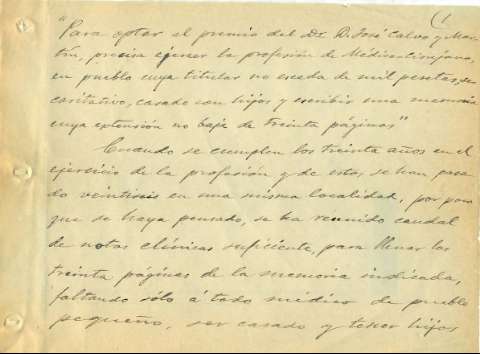 (1
"Para optar al premio del Dr. D. José Calvo y Mar-
tín, precisa ejercer la profesión de Médico-Cirujano,
en pueblo cuya titular no exceda de mil pesetas, ser
caritativo, casado con hijos y escribir una memoria
cuya extensión no baje de treinta páginas"
Cuando se cumplen los treinta años en el
ejercicio de la profesión y de estos se han pasa-
do veintiseis en una misma localidad, por poco
que se haya pensado, se ha reunido caudal
de notas clínicas suficiente, para llenar las
treinta páginas de la memoria indicada,
faltando sólo á todo médico de pueblo
pequeño, ser casado y tener hijos